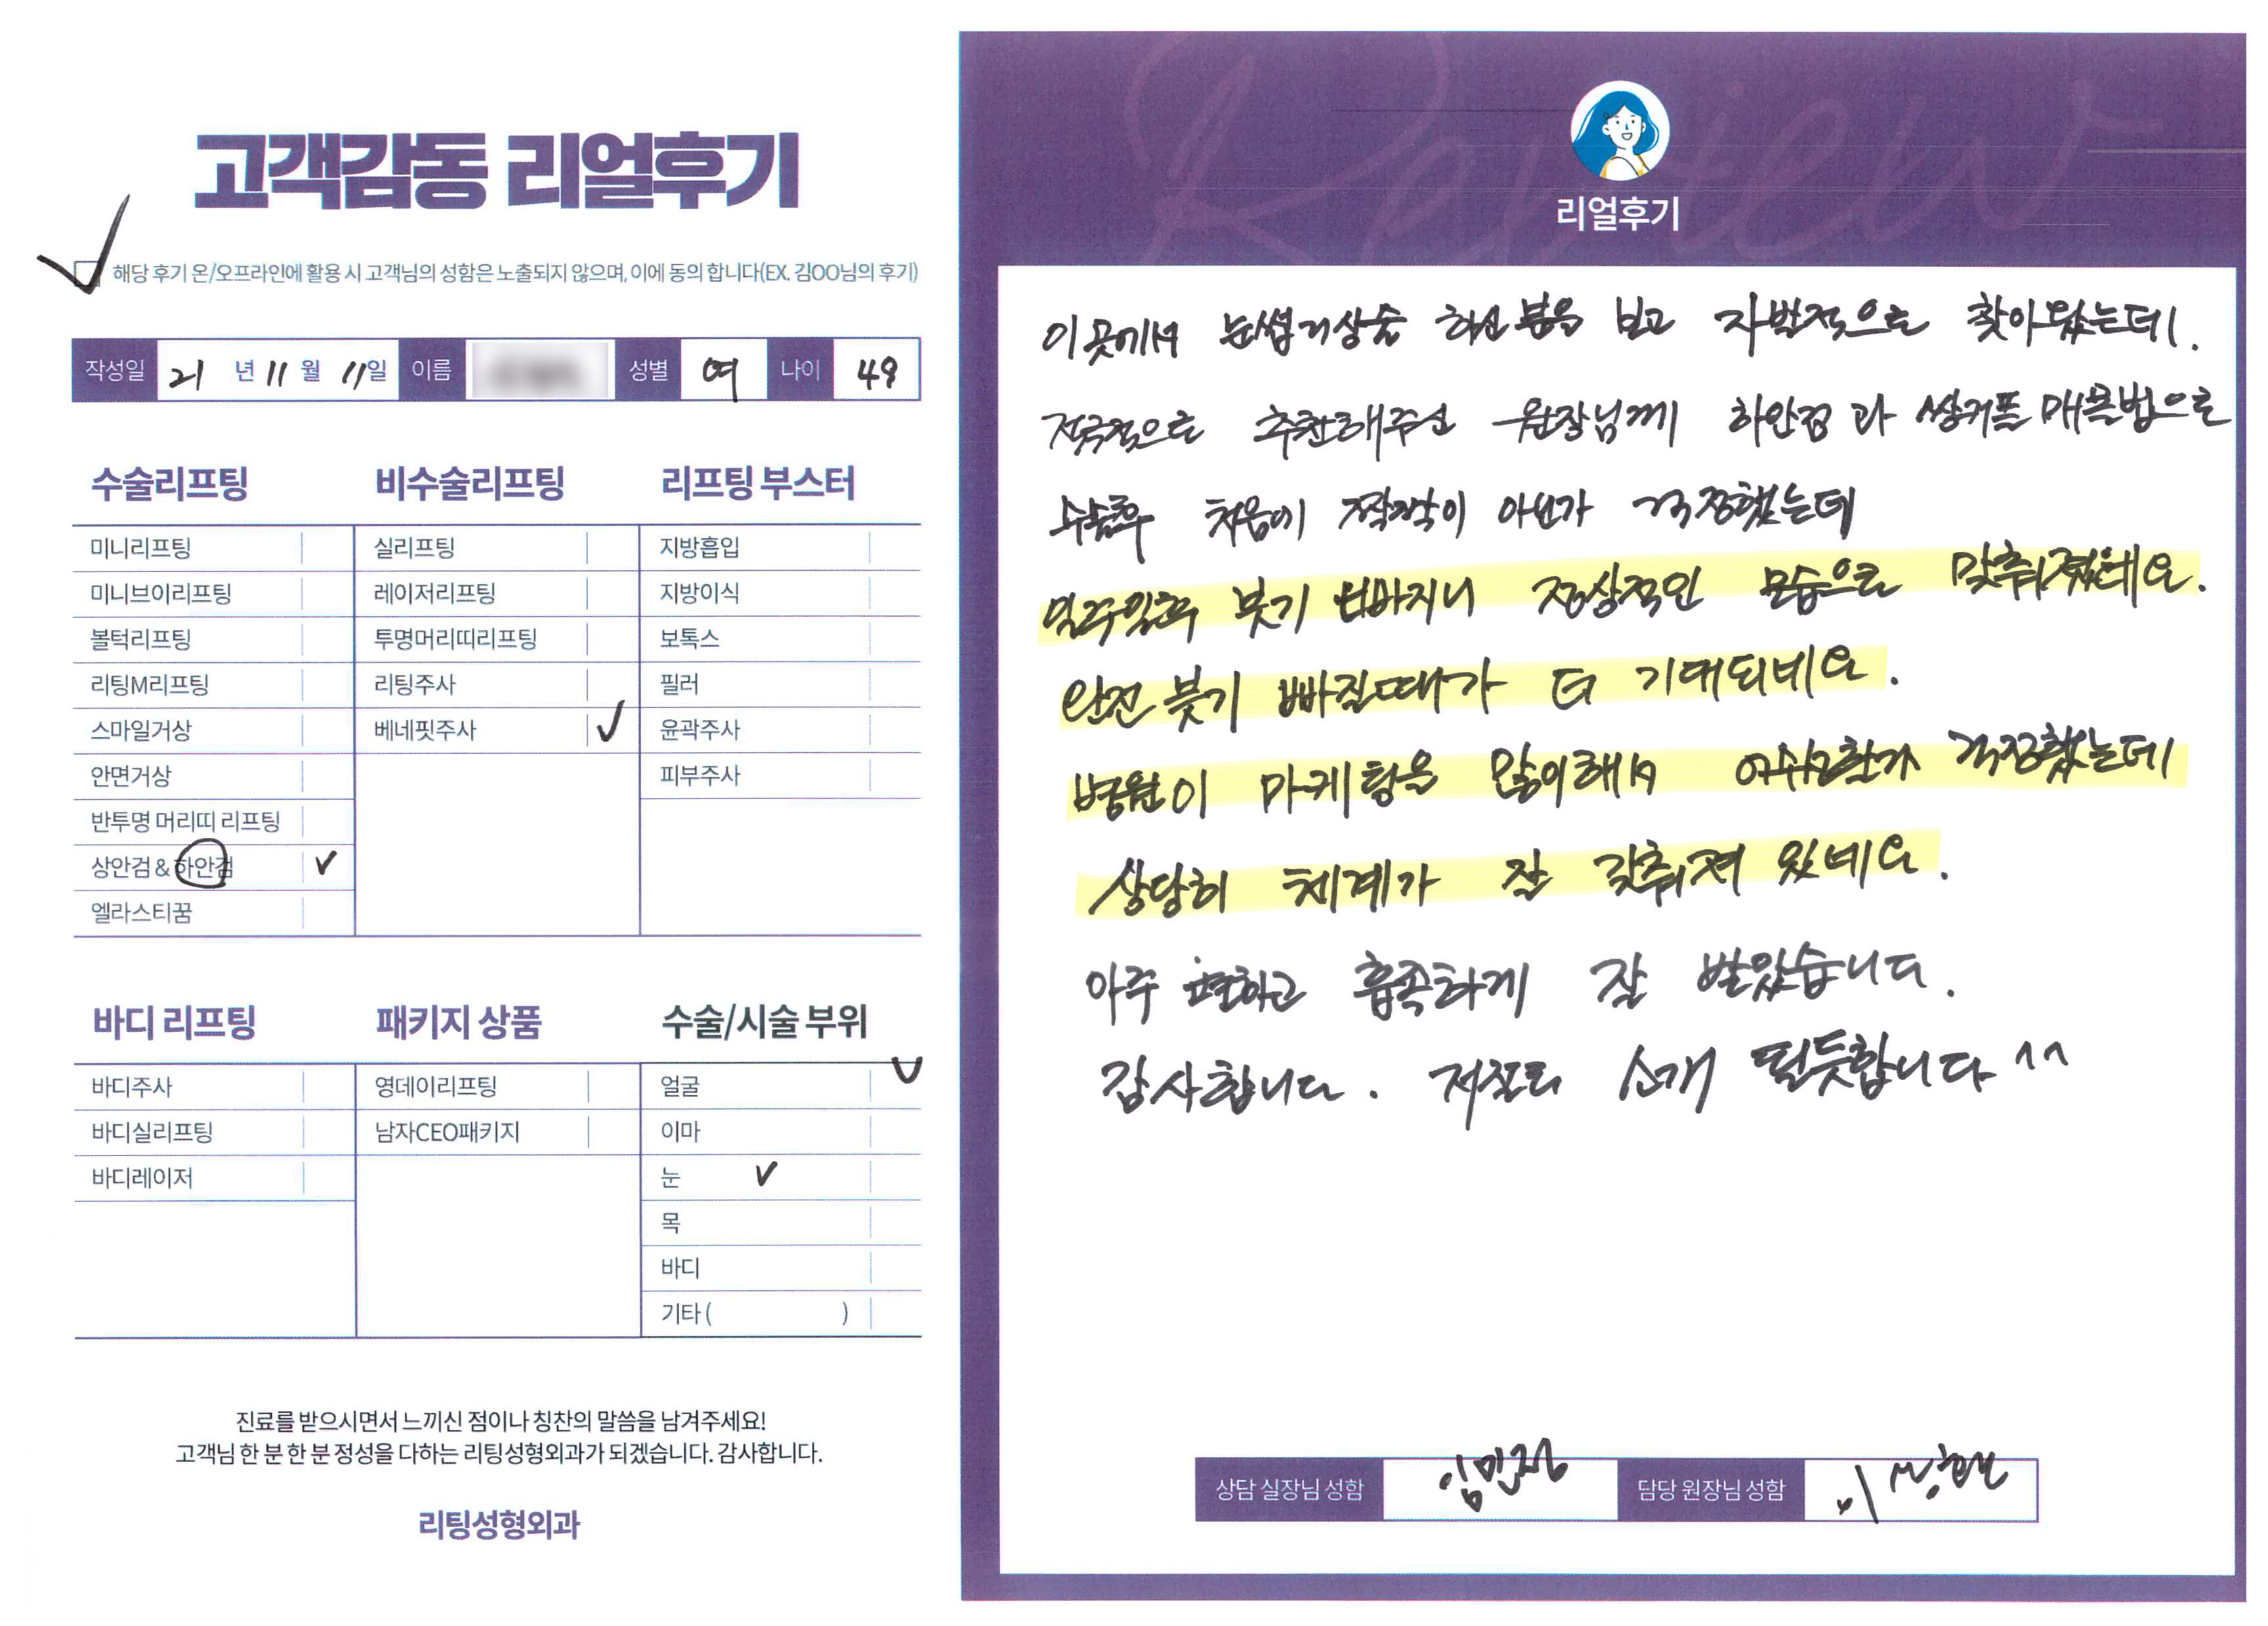 고객감동 리얼후기
해당 후기 온/오프라인에 활용 시 고객님의 성함은 노출되지 않으며, 이에 동의 합니다(EX. 김OO님의 후기)
작성일 21 년 11 월 11일 이름 성별 여 나이 49
수술리프팅
미니리프팅
미니브이리프팅
볼턱리프팅
리팅M리프팅
스마일거상
안면거상
반투명 머리띠 리프팅
상안검 & 하안검
엘라스티꿈
비수술리프팅
실리프팅
레이저리프팅
투명머리띠리프팅
리팅주사
베네핏주사
리프팅 부스터
지방흡입
지방이식
보톡스
필러
윤곽주사
피부주사
바디 리프팅
바디주사
바디실리프팅
바디레이저
패키지 상품
영데이리프팅
남자CEO패키지
수술/시술 부위
얼굴
이마
눈
목
바디
기타 ( )
진료를 받으시면서 느끼신 점이나 칭찬의 말씀을 남겨주세요!
고객님 한 분 한 분 정성을 다하는 리팅성형외과가 되겠습니다. 감사합니다.
리팅성형외과
Review
리얼후기
이곳에서 눈썹거상술 하신 분을 보고 자발적으로 찾아왔는데.
적극적으로 추천해주신 원장님께 하안검과 쌍커플 매몰법으로
수술후 처음에 짝짝이 아닌가 걱정했는데
일주일후 붓기 빠지니 정상적인 모습으로 맞춰졌네요.
완전 붓기 빠질때가 더 기대되네요.
병원이 마케팅을 많이해서 어쉬운가 걱정했는데
상당히 체계가 잘 갖춰져 있네요.
아주 편하고 흡족하게 잘 받았습니다.
감사합니다. 저절로 소개 될듯합니다 ^^
상담 실장님 성함 임민정 담당 원장님 성함 이상현